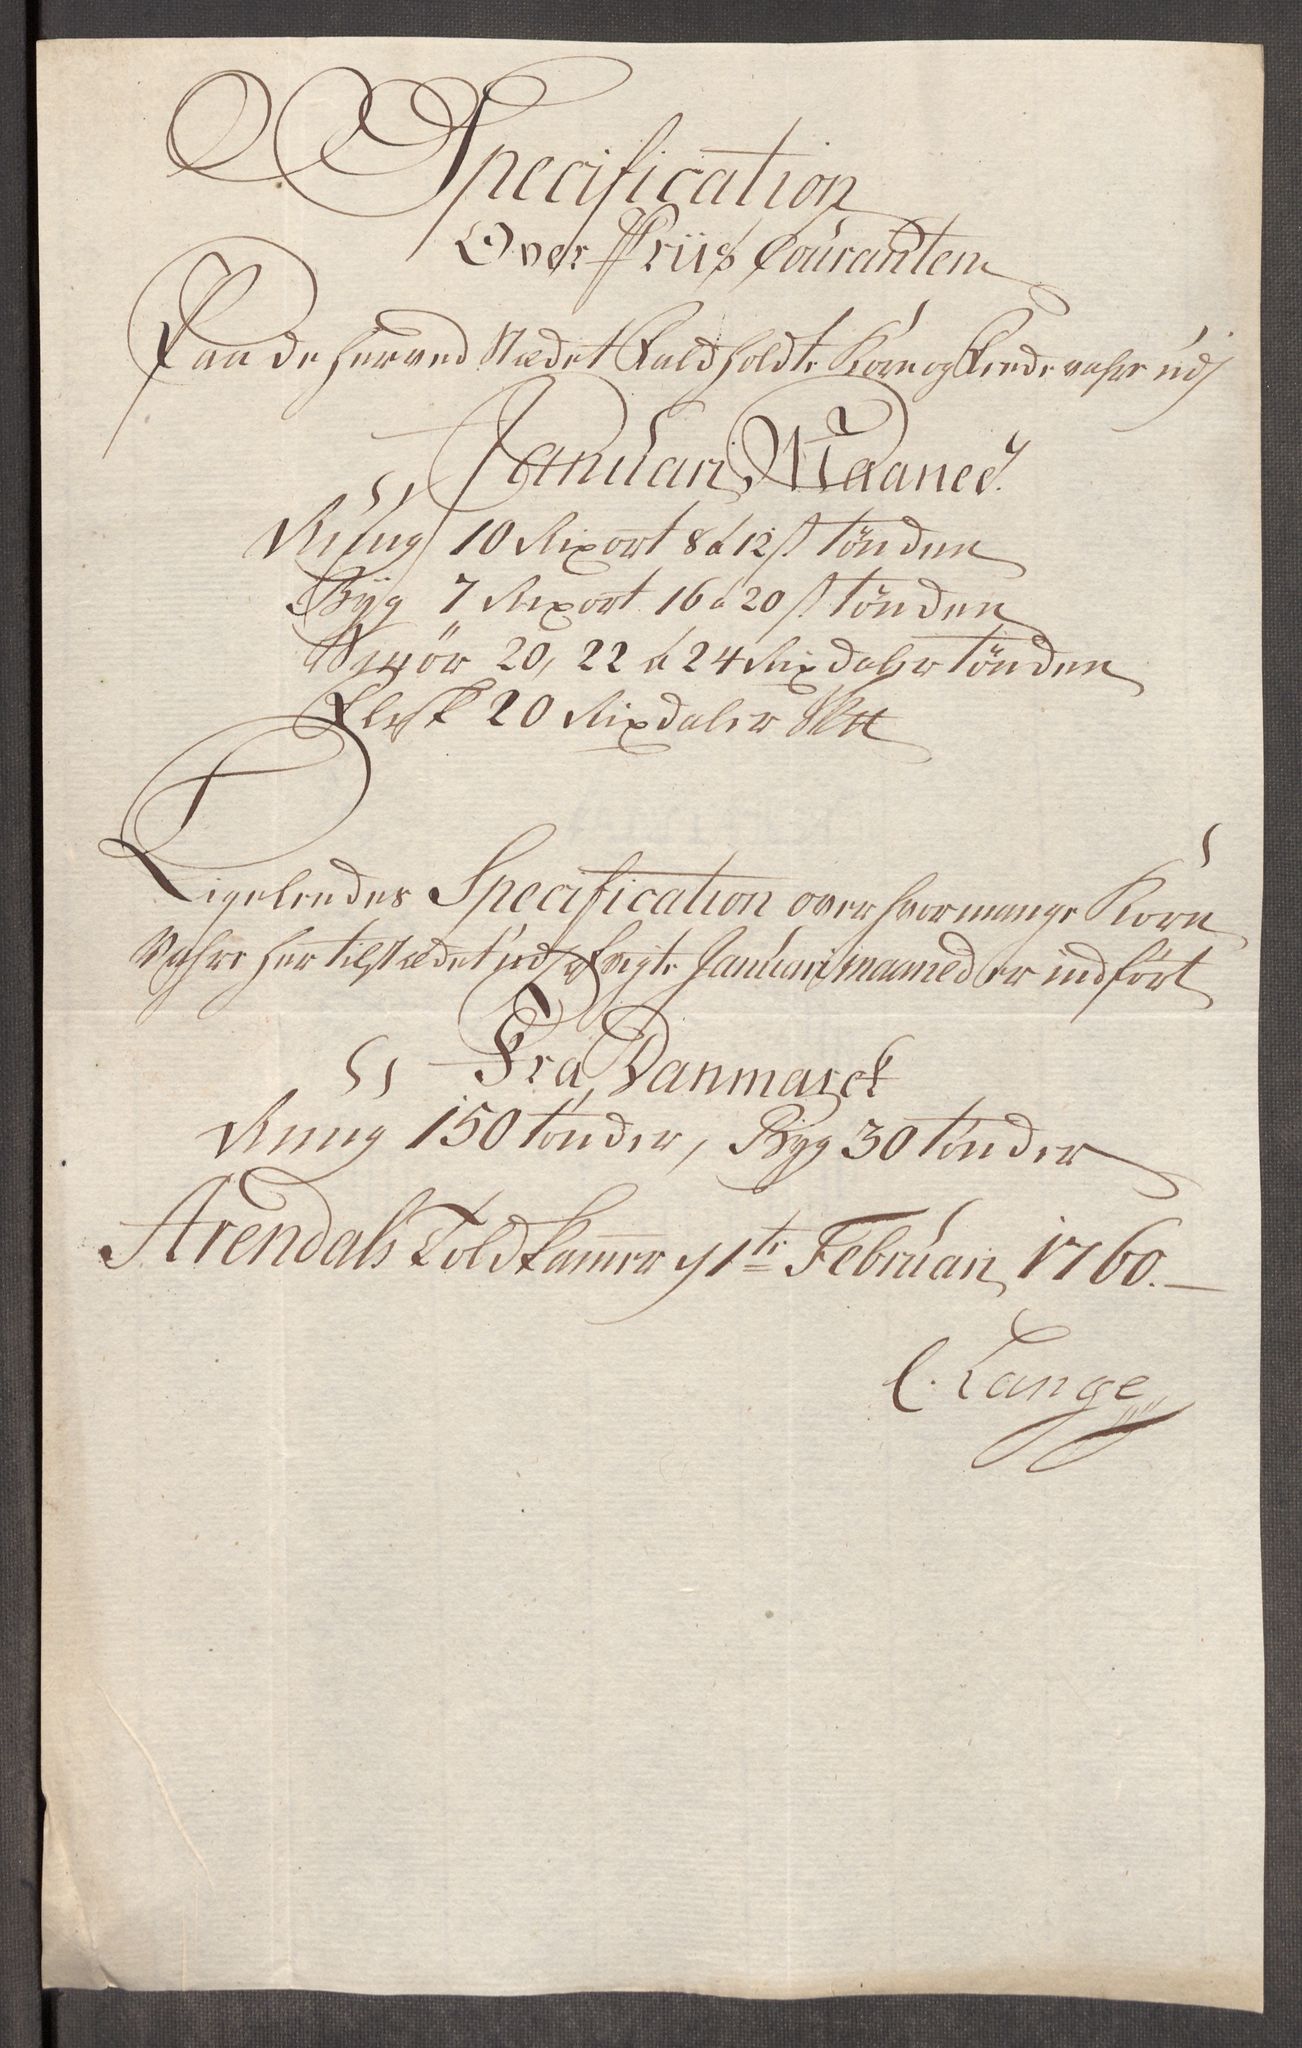 Specification
Over Priis Couranten
Paa de herved Stædet Faldholdte Korn og Fædevahre udj
Januari Maaned.
Rüug 10 Rixort 8 á 12 s. tønden
Byg 7 Rixort 16 á 20 s. tønden
Smør 20, 22 á 24 Rixdaler tønden
Flesk 20 Rixdaler Sk℔
Ligeledes Specification over hvormange Korn
Vahre her til Stædet udj afvigte Januari maaned er indført
Fra Danmarck
Ruug 150 tønder, Byg 30 tønder
Arendals Toldkammer d 1te Februari 1760.
C. Lange